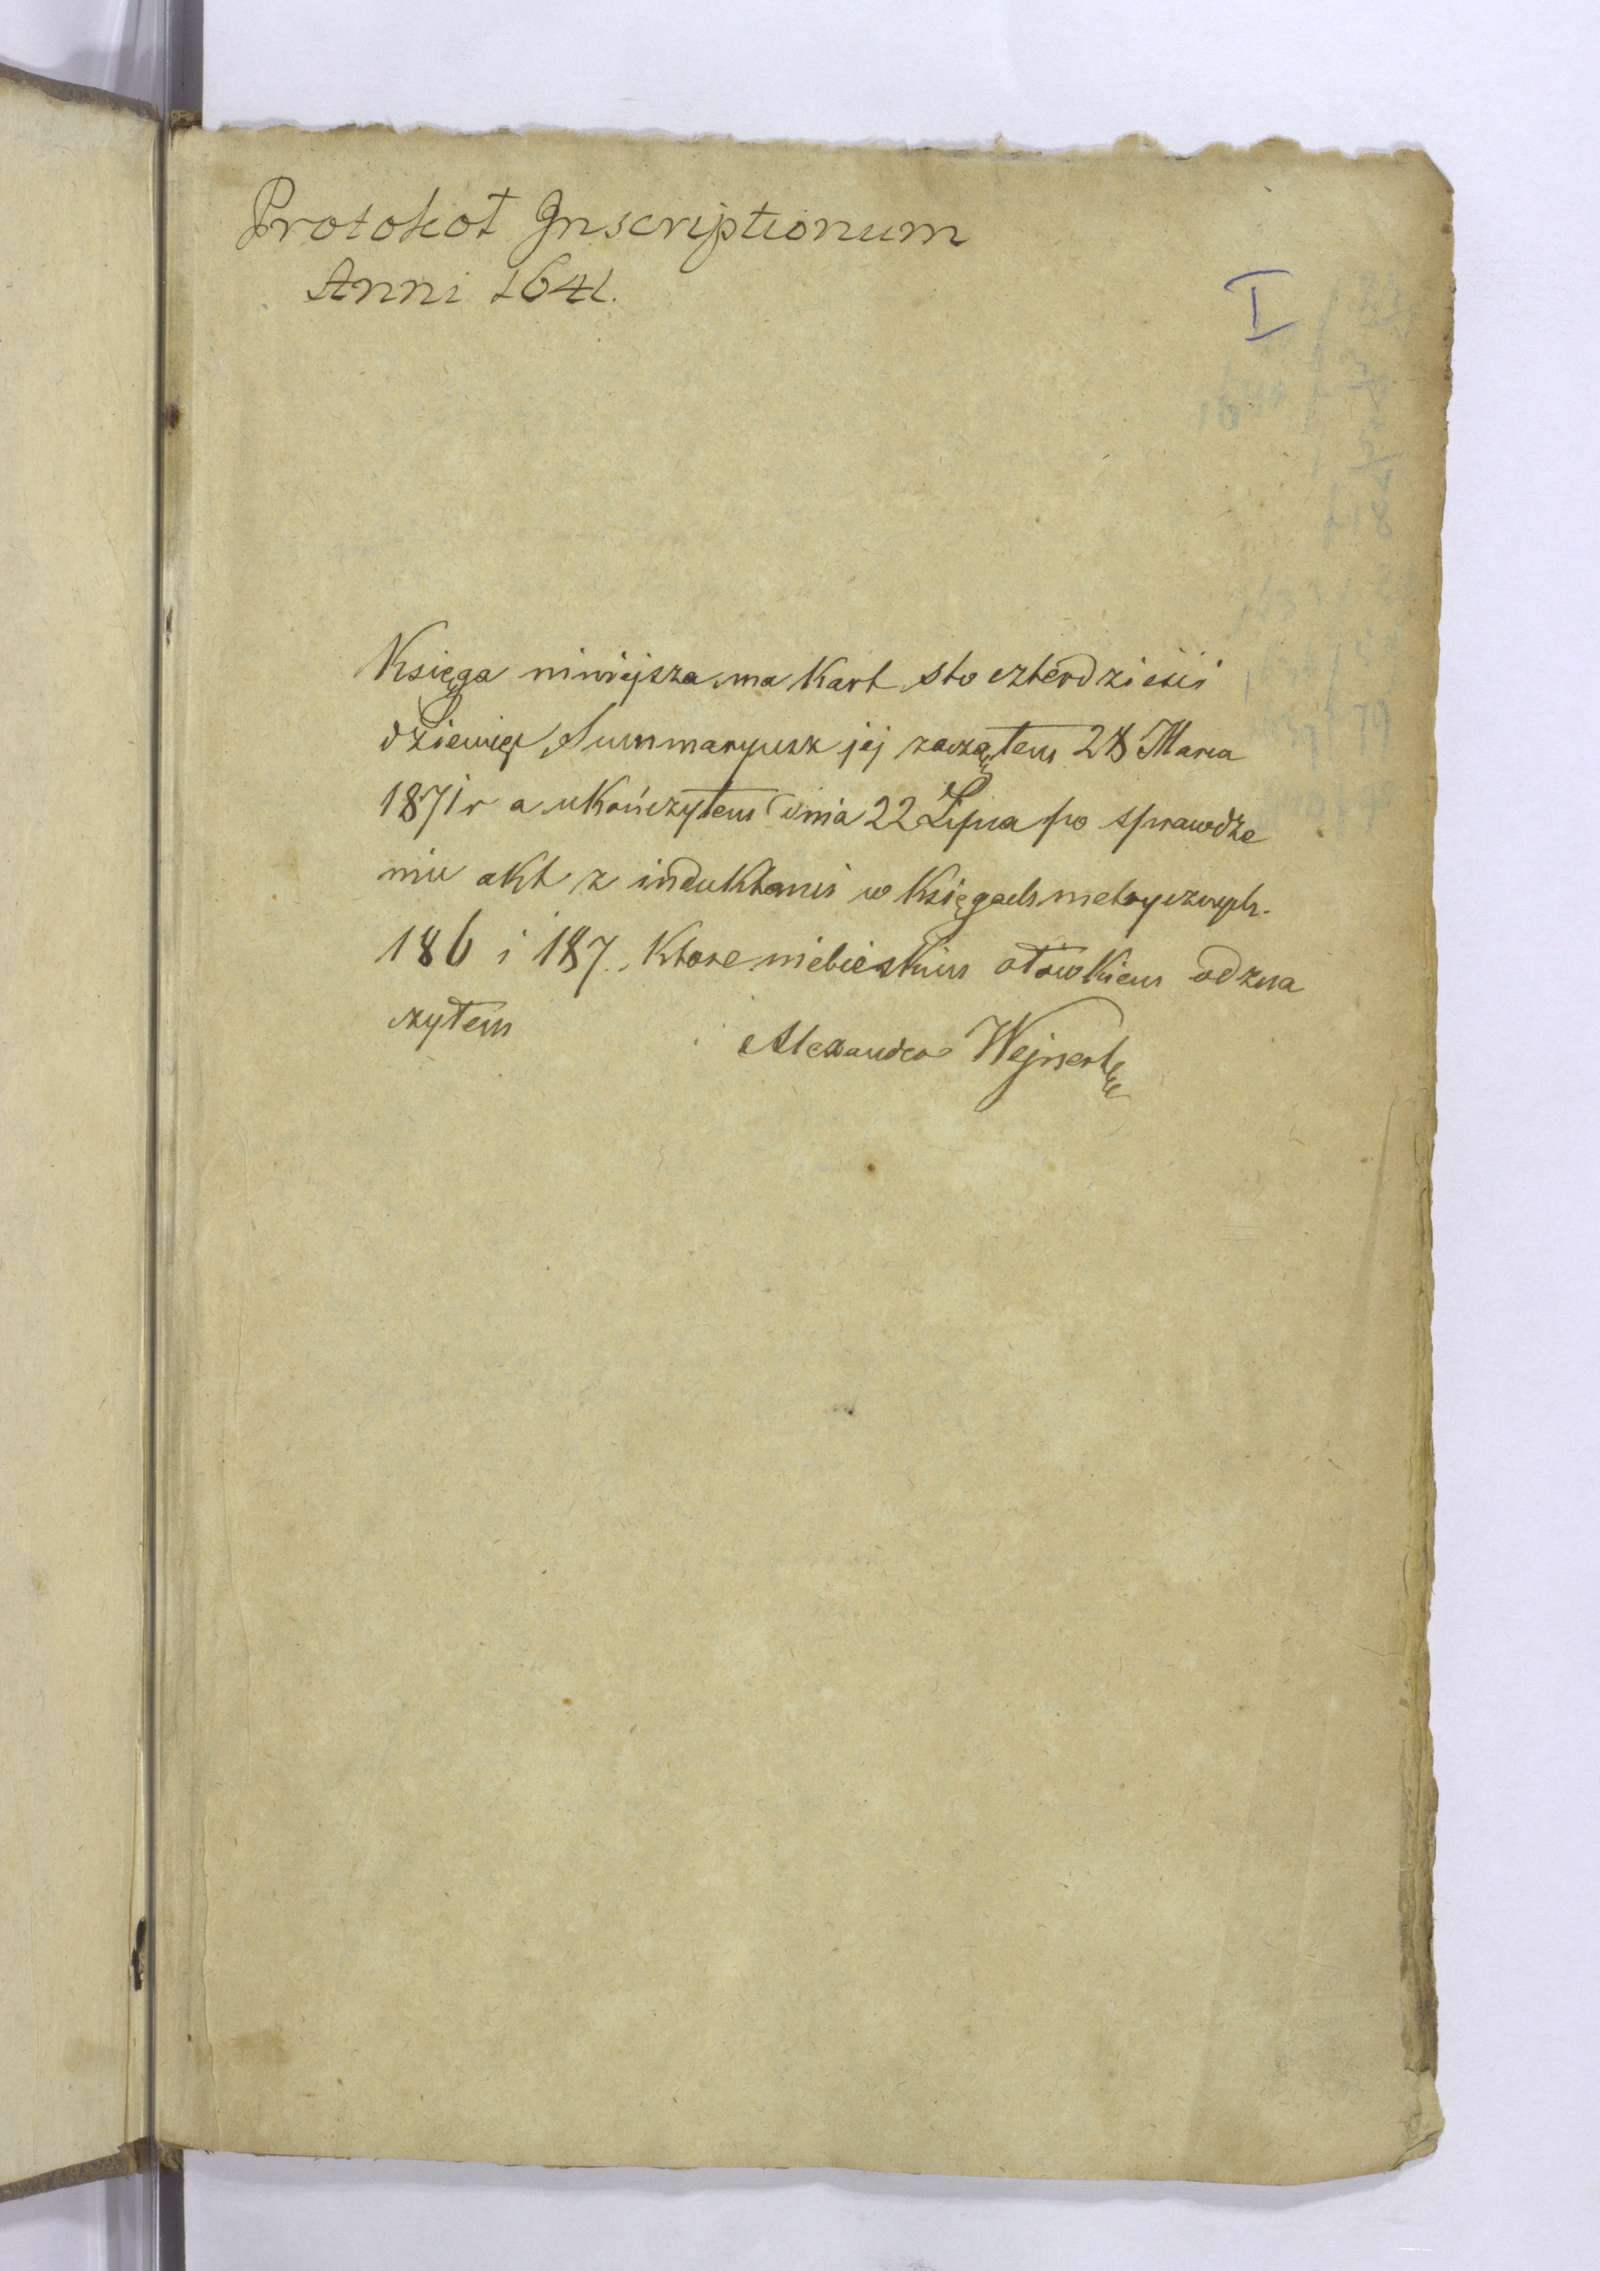 Protokół Inscriptionum
Anni 1641.
I
Księga niniejsza ma kart sto czterdzieści
dziewięć Summaryusz jej zacząłem 28 Marca
1871 r a ukończyłem dnia 22 Lipca po sprawdze
niu akt z induktami w księgach metrycznych
186 i 187. które niebieskim ołówkiem odzna
czyłem
Alexander Wejnert